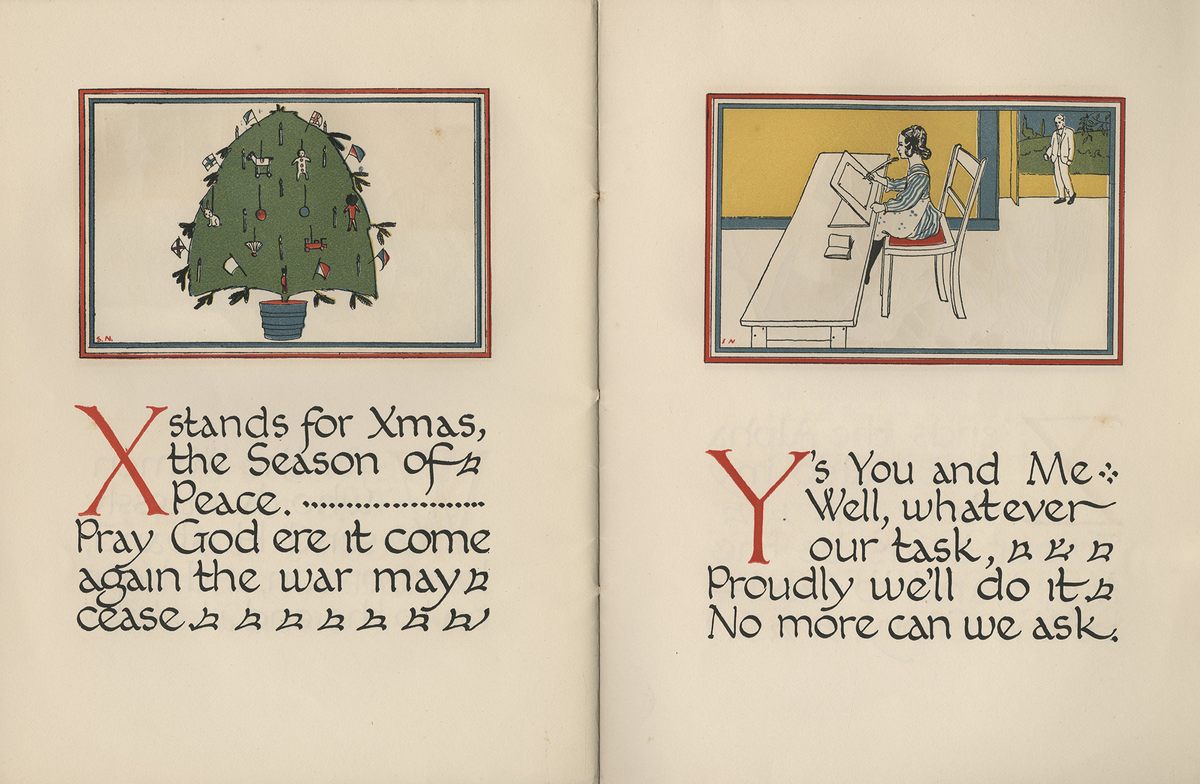 S.N.
X stands for Xmas,
the Season of
Peace.
Pray God ere it come
again the war may
cease.
I N
Y's You and Me
Well, whatever
our task,
Proudly we'll do it.
No more can we ask.